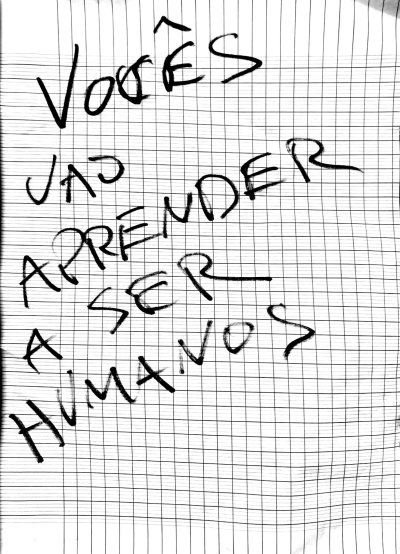 VOCÊS
VAO
APRENDER
A SER
HUMANOS